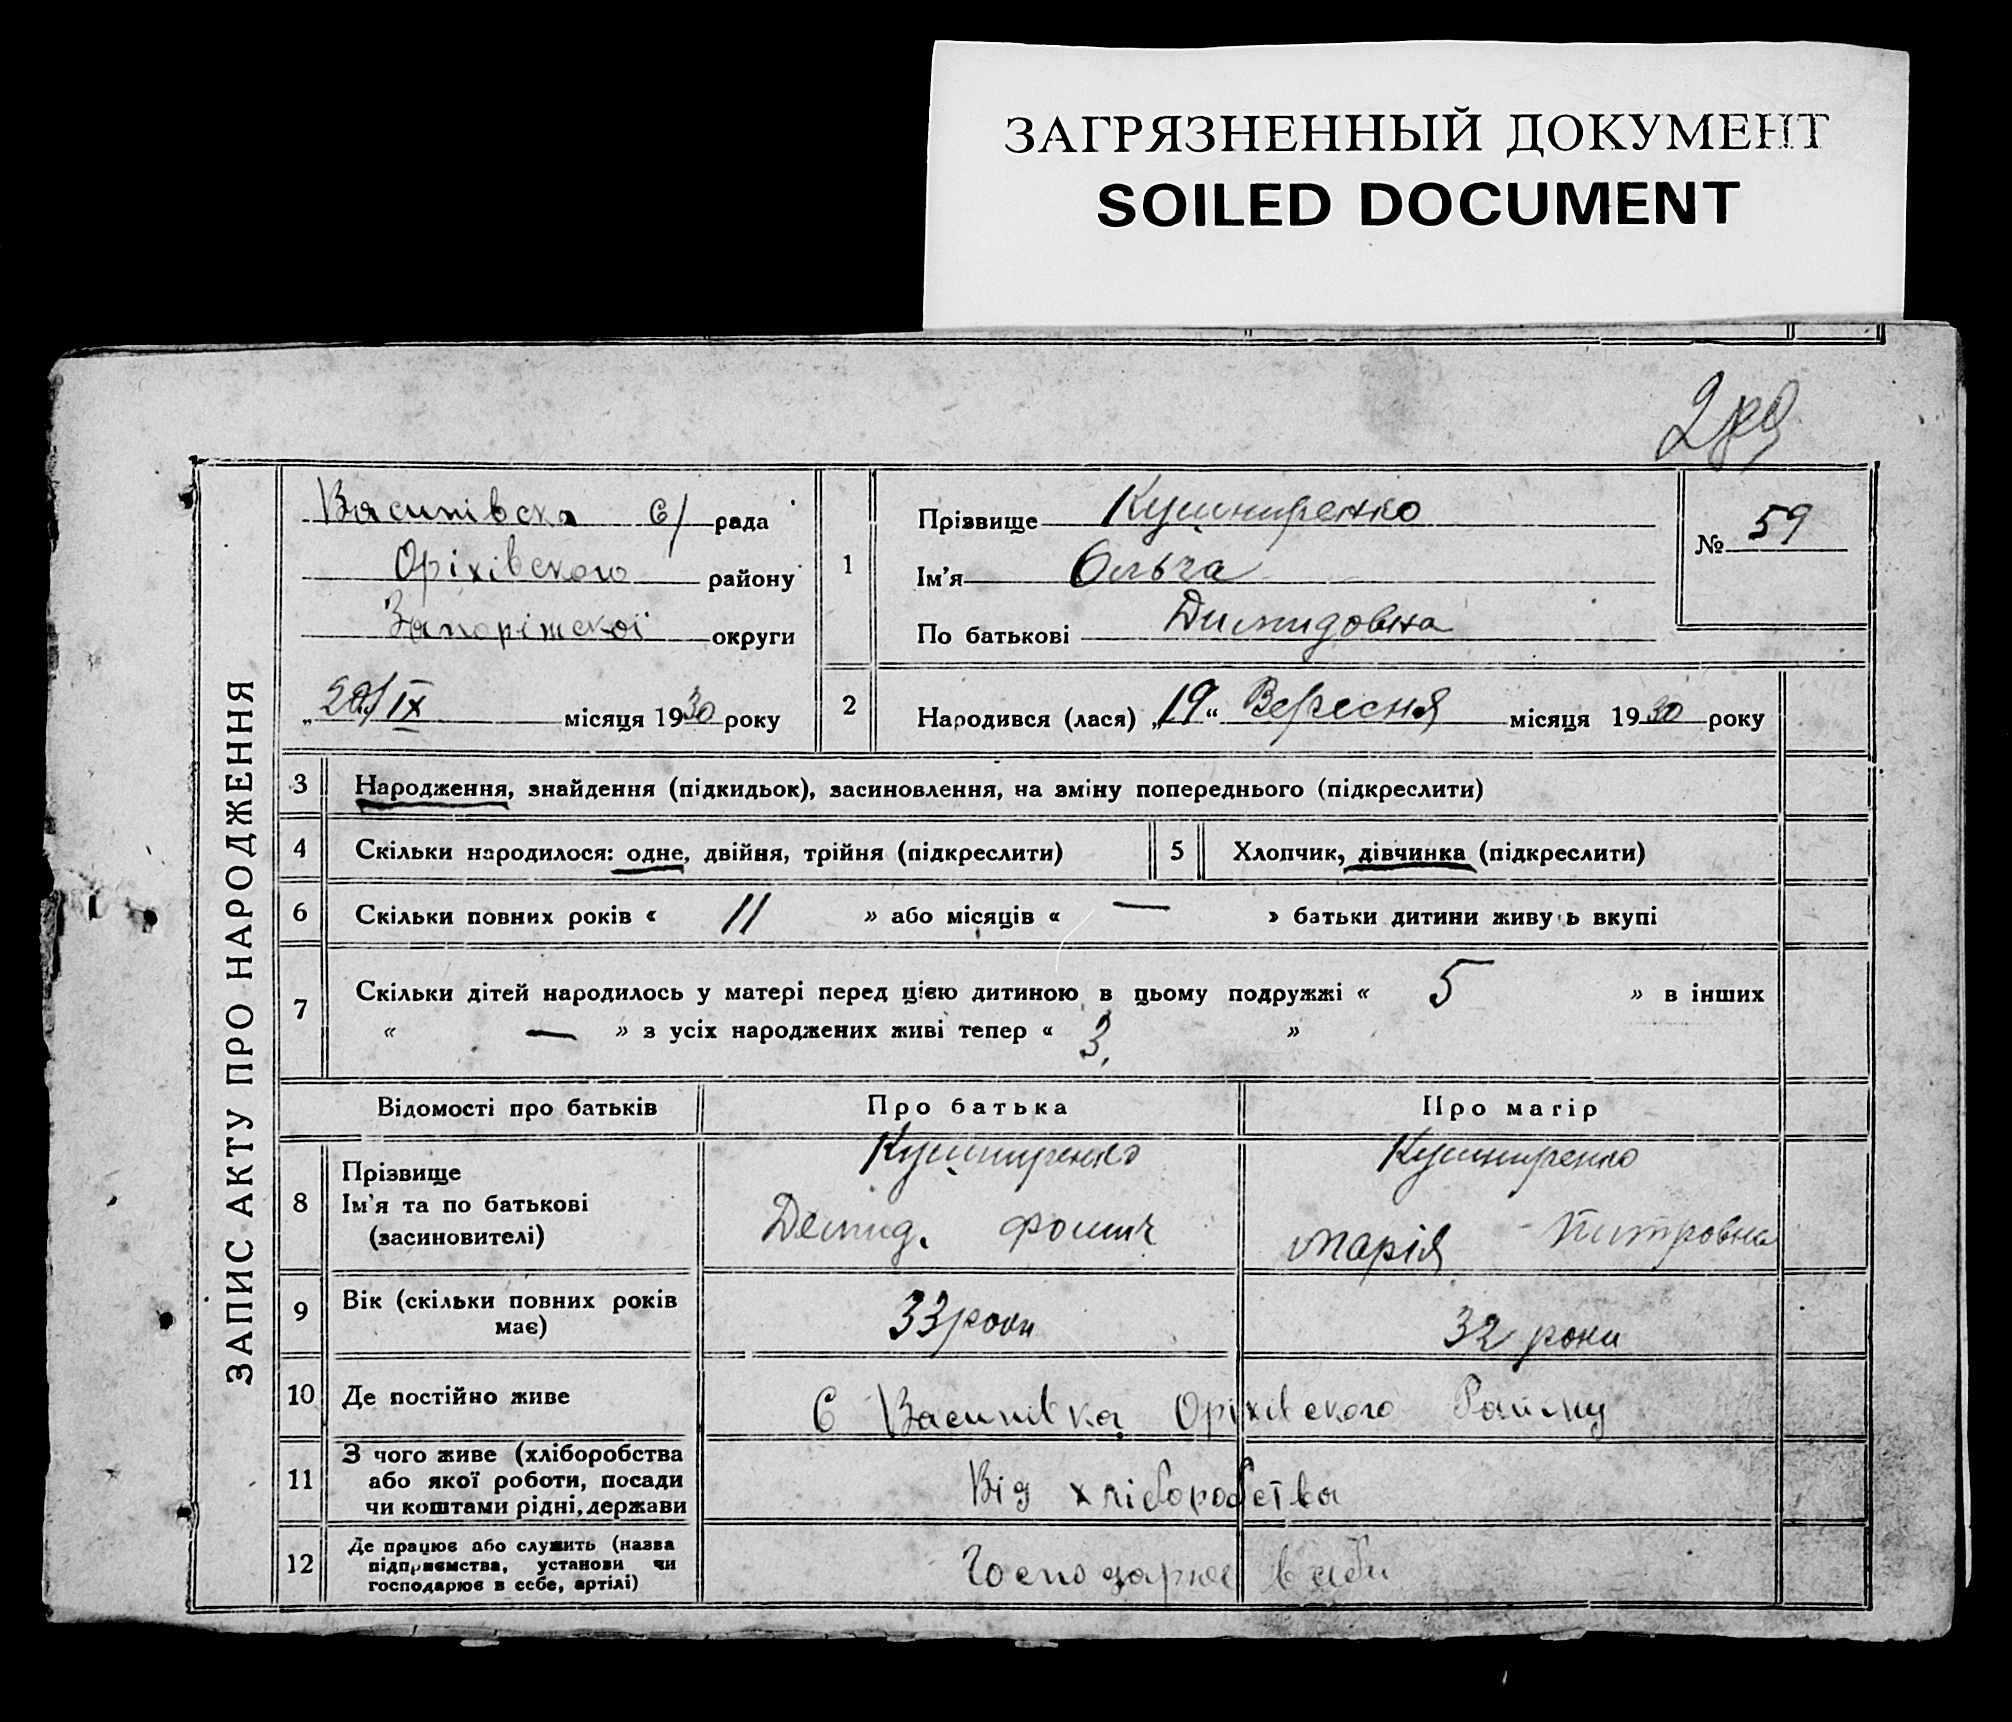 ЗАГРЯЗНЕННЫЙ ДОКУМЕНТ
SOILED DOCUMENT
ЗАПИС АКТУ ПРО НАРОДЖЕННЯ
Василівська С/ рада
Оріхівского району
Запоріжскої округи
„20/IX місяця 1930 року
1
Прізвище Кушниренко
Ім'я Ольга
По батькові Димидовна
№ 59
2
Народився (лася) „19“ Вересня місяця 1930 року
3 Народження, знайдення (підкидьок), засиновлення, на зміну попереднього (підкреслити)
4 Скільки народилося: одне, двійня, трійня (підкреслити) 5 Хлопчик, дівчинка (підкреслити)
6 Скільки повних років « 11 » або місяців « — » батьки дитини живу ь вкупі
7 Скільки дітей народилось у матері перед цією дитиною в цьому подружжі « 5 » в інших
« — » з усіх народжених живі тепер « 3. »
Відомості про батьків Про батька Про матір
8 Прізвище
Ім'я та по батькові
(засиновителі)
Кушниренко
Демид. Фомич
Кушниренко
Марія Питровна
9 Вік (скільки повних років
має)
33 роки 32 роки
10 Де постійно живе С Василівка Оріхівского Району
11 З чого живе (хліборобства
або якої роботи, посади
чи коштами рідні, держави
Від хліборобства
12 Де працює або служить (назва
підприємства, установи чи
господарює в себе, артілі)
Господарює в себи